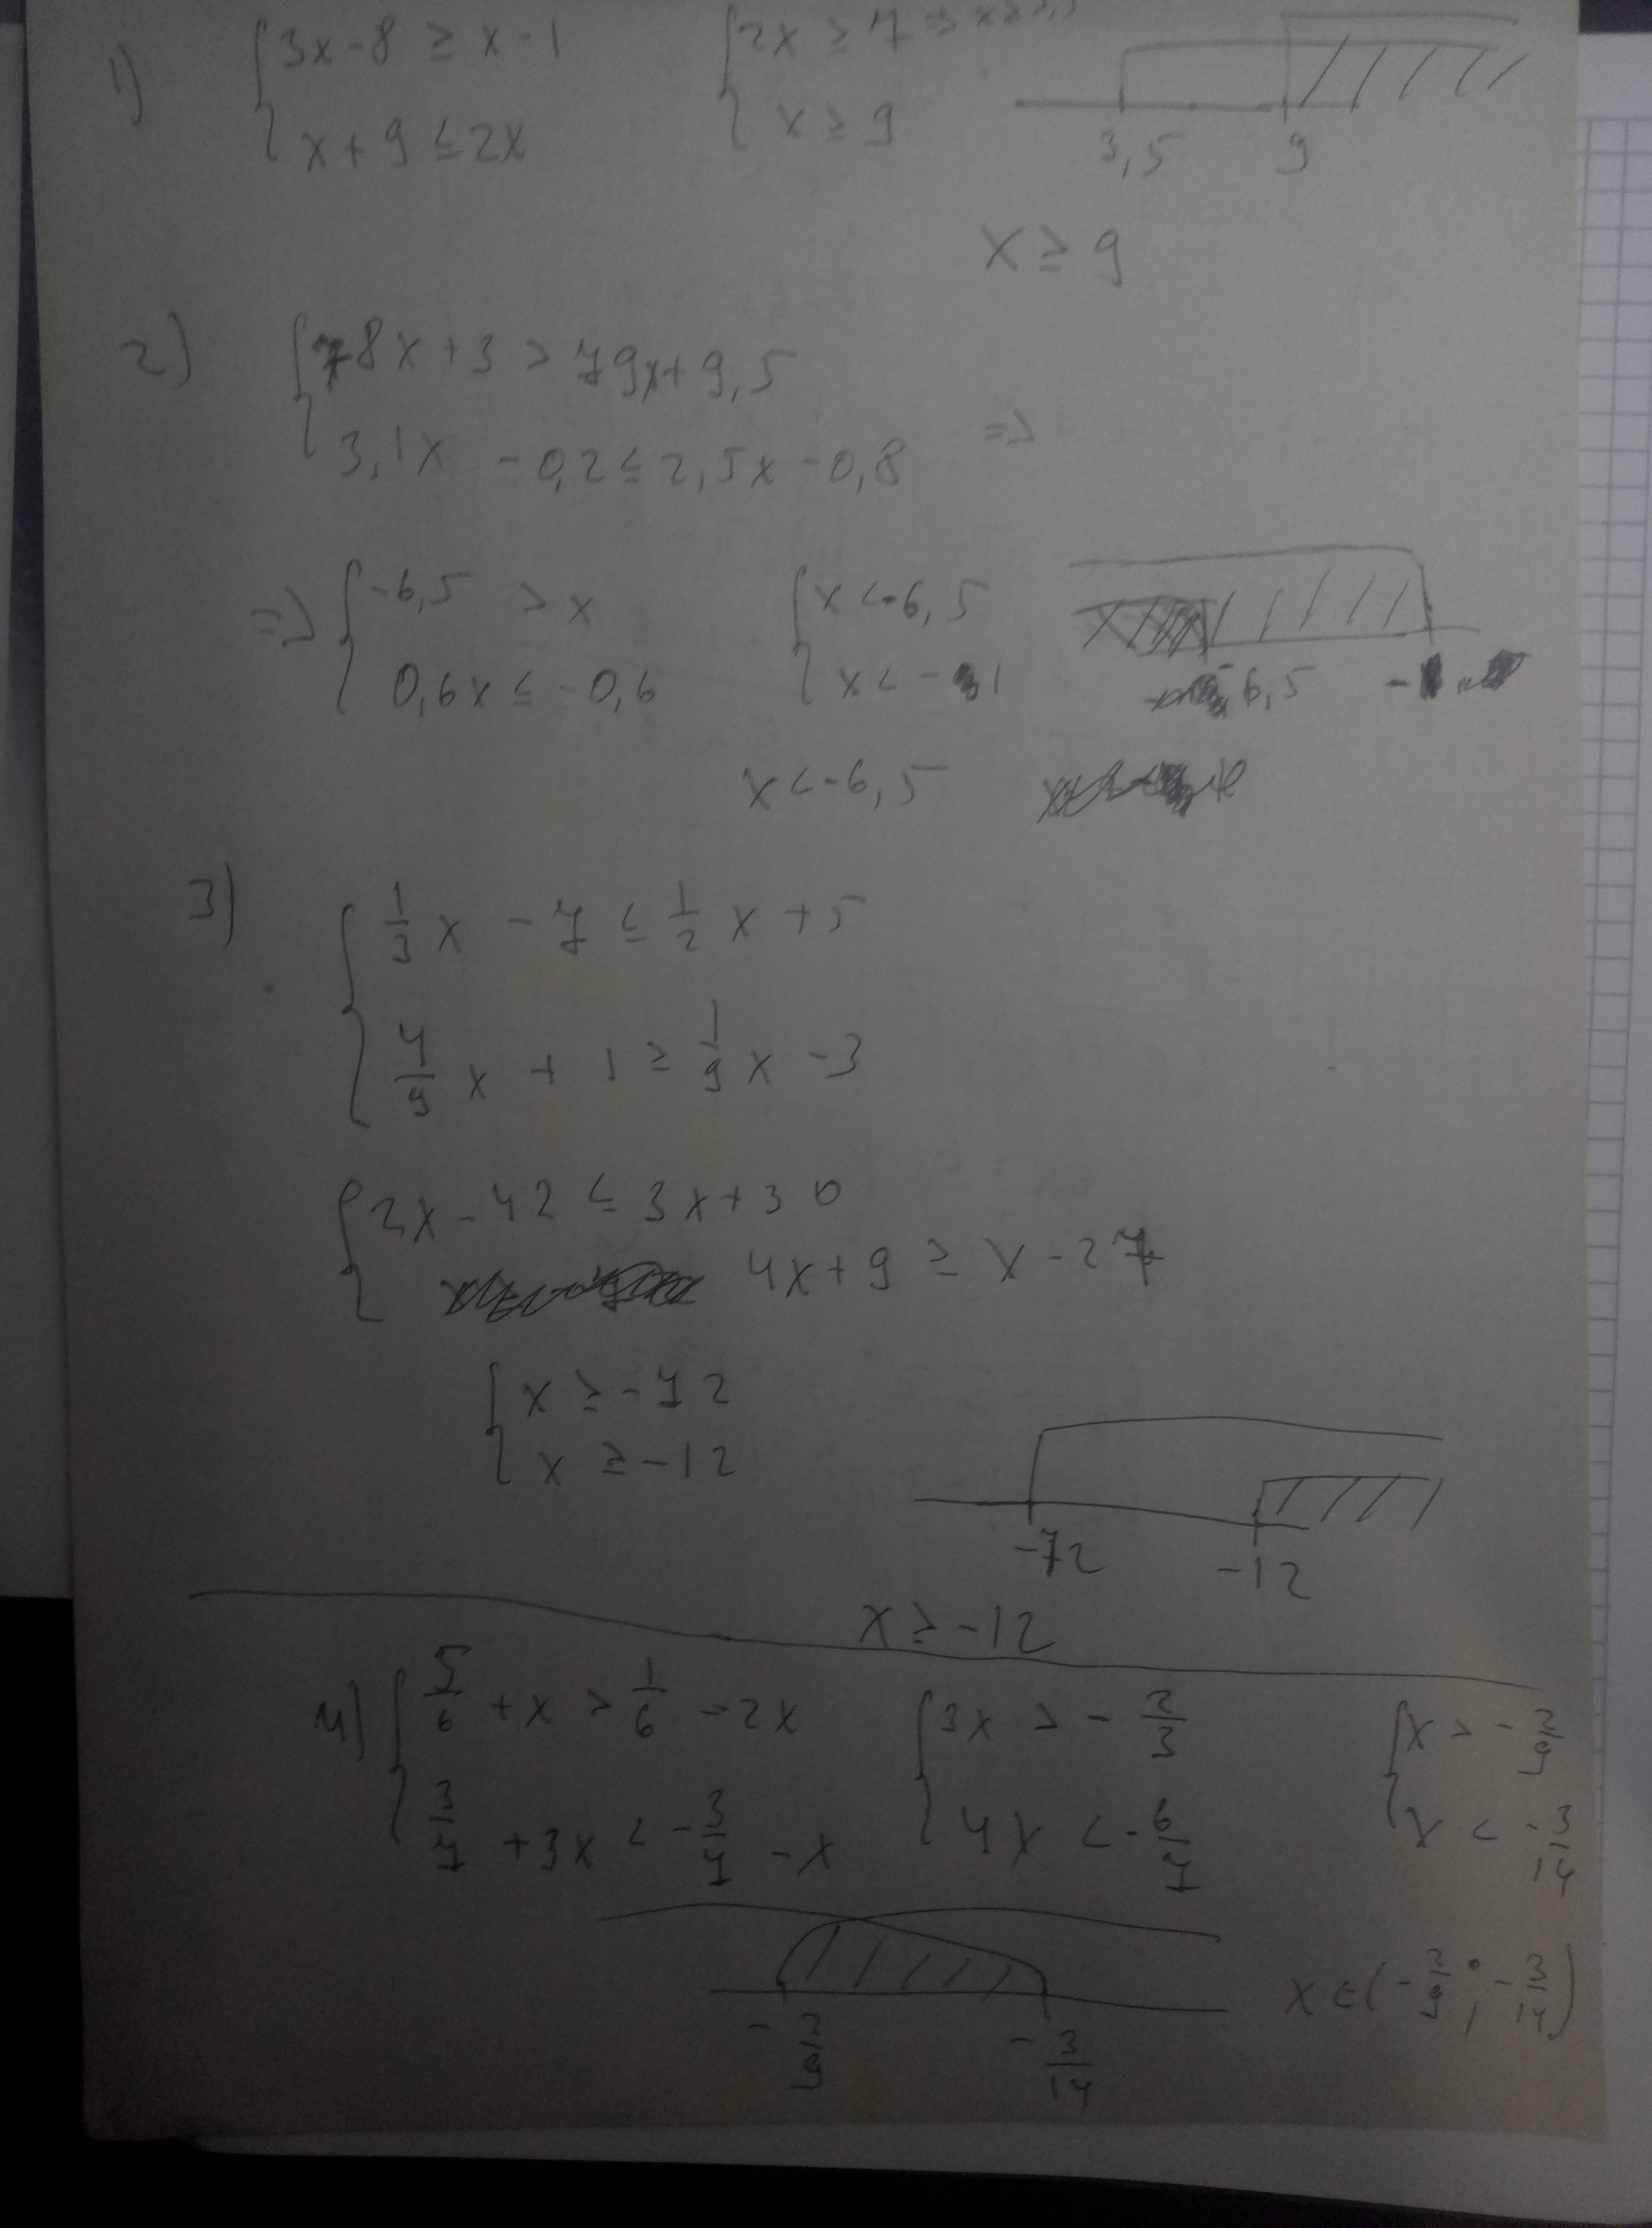 1) { 3x - 8 ≥ x - 1
x + 9 ≤ 2x
{ 2x ≥ 7 ⇒ x ≥ 3,5
x ≥ 9
3,5 9
x ≥ 9
2) { 78x + 3 > 79x + 9,5
3,1x - 0,2 ≤ 2,5x - 0,8 =>
=> { -6,5 > x
0,6x ≤ -0,6
{ x < -6,5
x < -1
-6,5
x < -6,5
3) { 1/3 x - 7 ≤ 1/2 x + 5
4/9 x + 1 ≥ 1/9 x - 3
{ 2x - 42 ≤ 3x + 30
4x + 9 ≥ x - 27
{ x ≥ -72
x ≥ -12
-72 -12
x ≥ -12
4) { 5/6 + x > 1/6 - 2x
3/7 + 3x < -3/7 - x
{ 3x > -2/3
4x < -6/7
{ x > -2/9
x < -3/14
-2/9 -3/14
x ∈ (-2/9 ; -3/14)